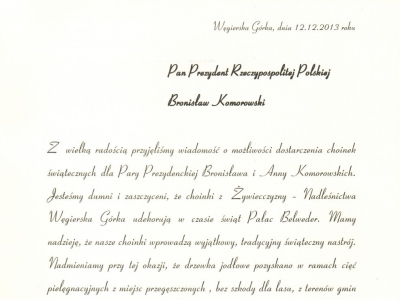 Węgierska Górka, dnia 12.12.2013 roku
Pan Prezydent Rzeczypospolitej Polskiej
Bronisław Komorowski
Z wielką radością przyjęliśmy wiadomość o możliwości dostarczenia choinek
świątecznych dla Pary Prezydenckiej Bronisława i Anny Komorowskich.
Jesteśmy dumni i zaszczyceni, że choinki z Żywiecczyzny - Nadleśnictwa
Węgierska Górka udekorują w czasie świąt Pałac Belweder. Mamy
nadzieję, że nasze choinki wprowadzą wyjątkowy, tradycyjny świąteczny nastrój.
Nadmieniamy przy tej okazji, że drzewka jodłowe pozyskano w ramach cięć
pielęgnacyjnych z miejsc przegęszczonych , bez szkody dla lasu, z terenów gmin